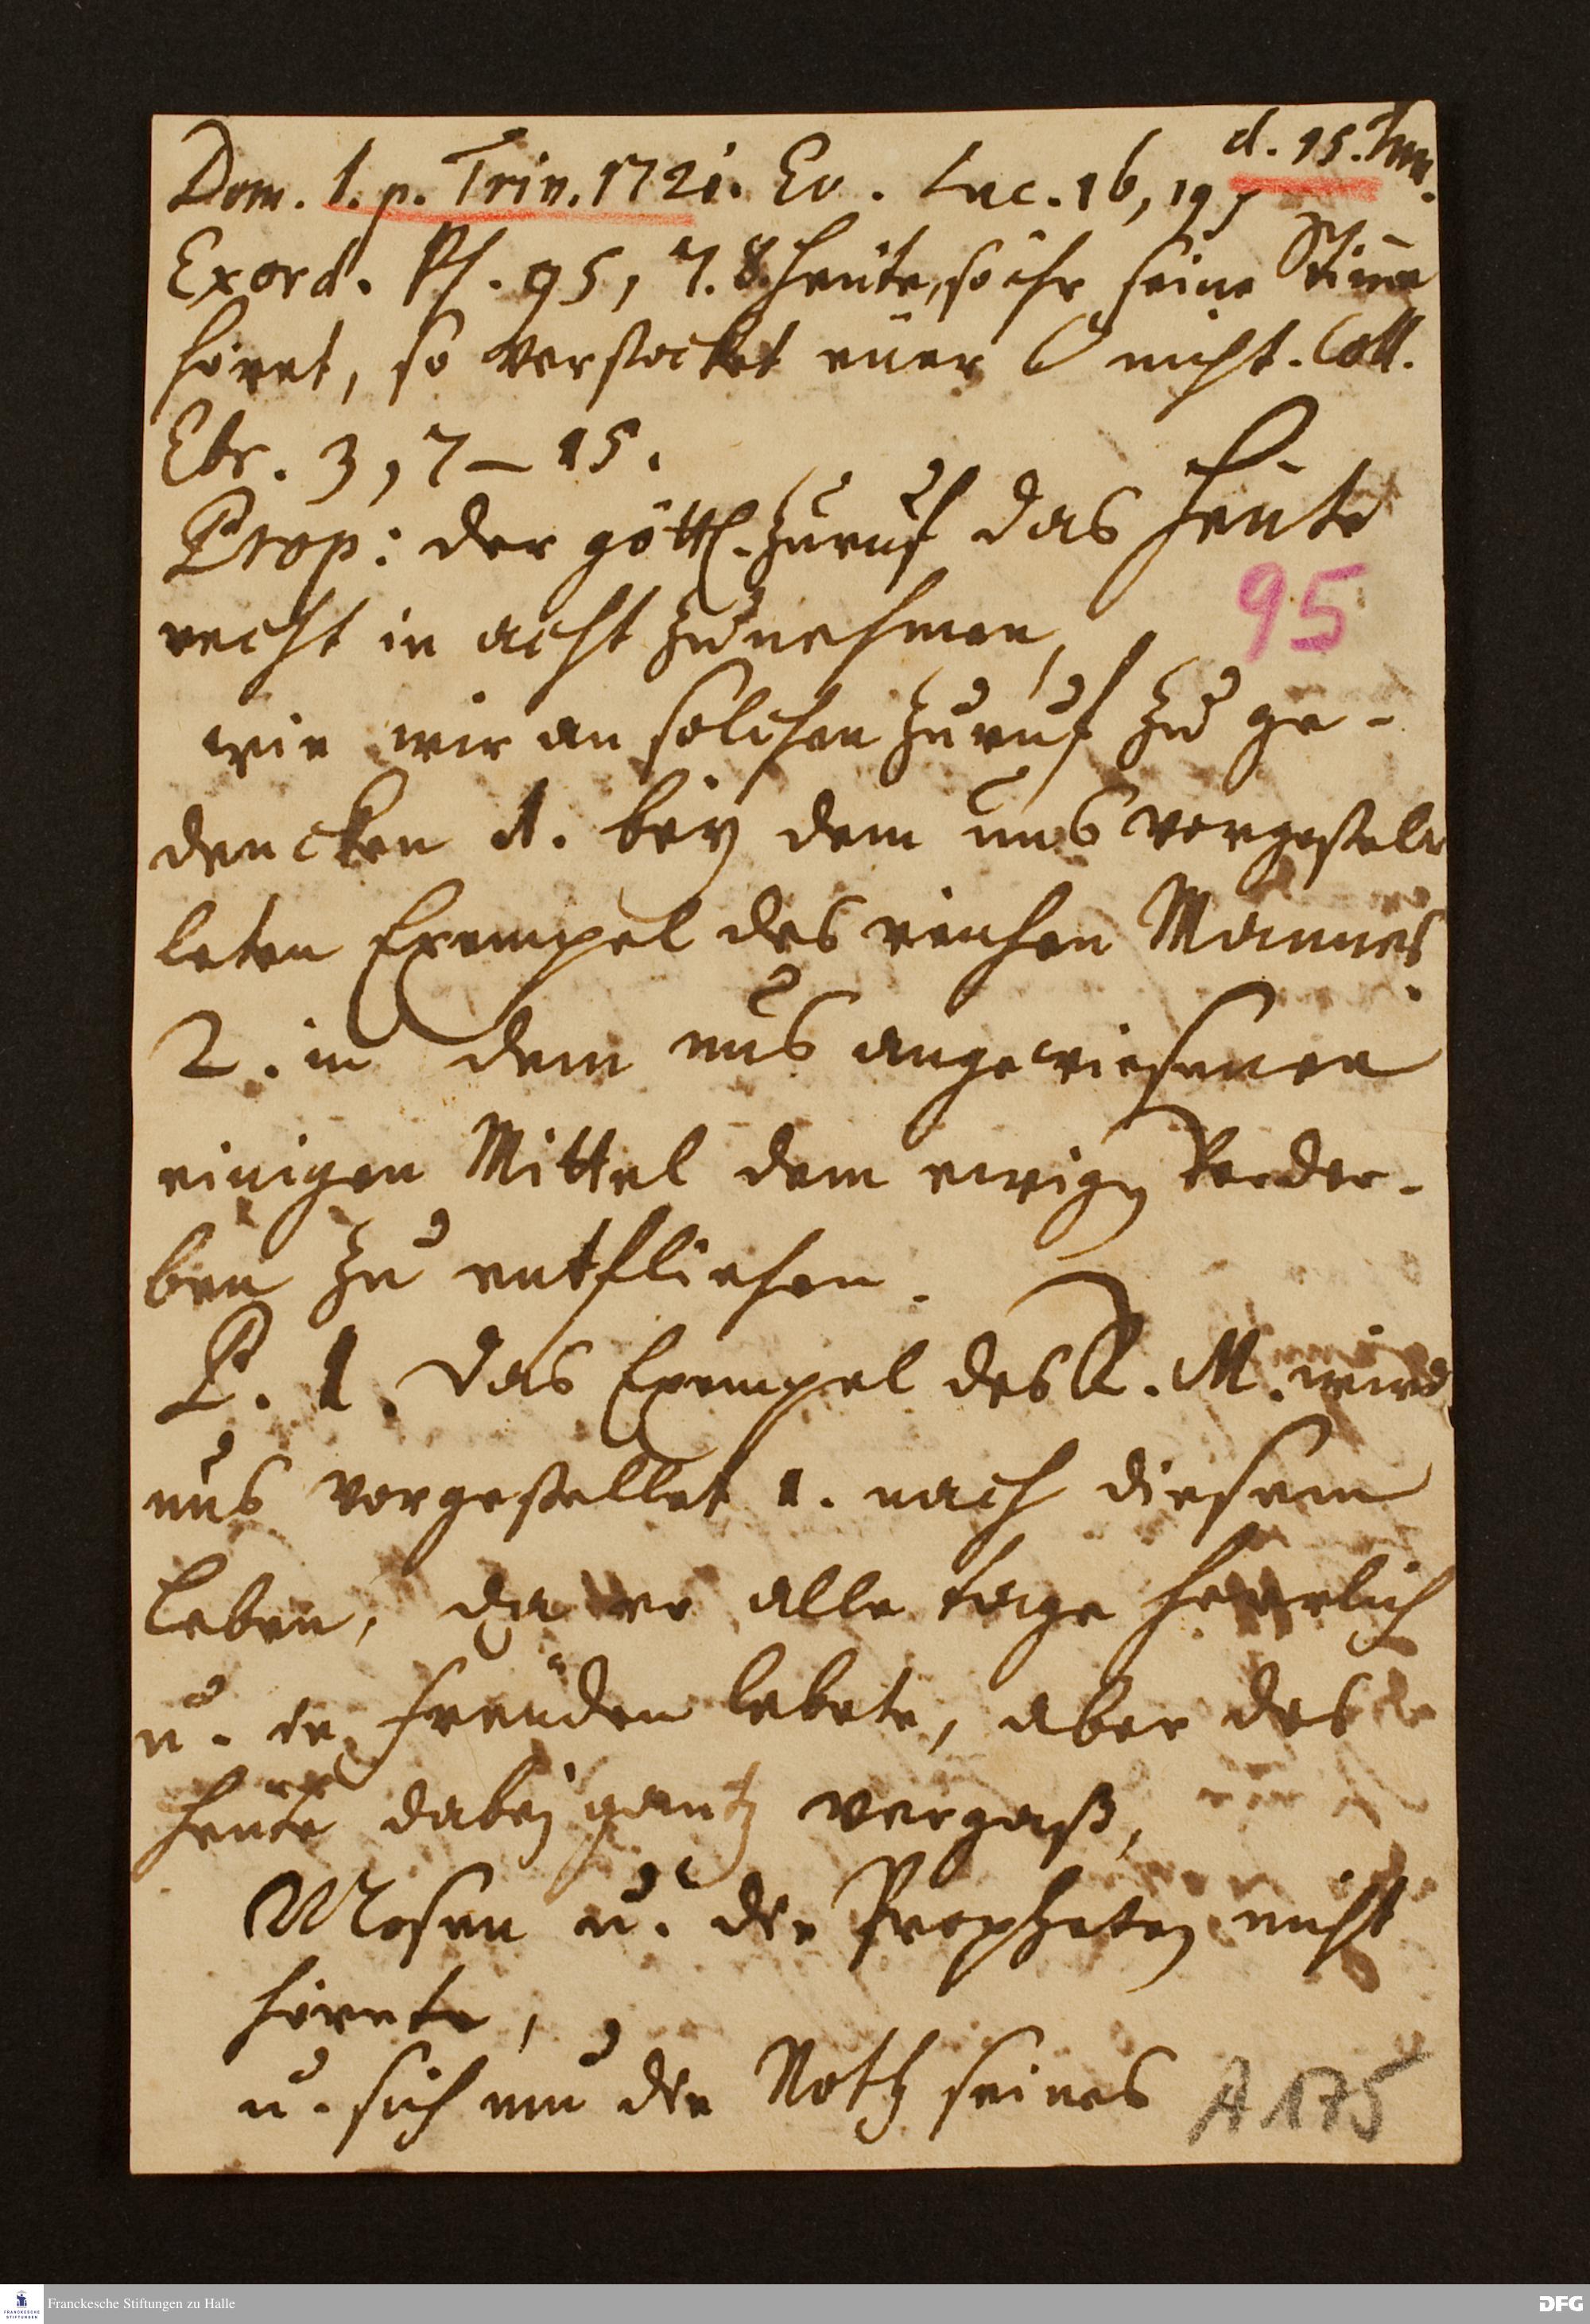 d. 15. Jun.
Dom. 1. p. Trin. 1721. Ev. Luc. 16, 19
Exord. Ps. 95, 7. 8. Heute, so ihr seine Stime
höret, so verstocket euer nicht. Coll.
Ebr. 3, 7–15.
Prop: der göttl. Zuruf das Heute
recht in acht zu nehmen,
95
wie wir an solchen Zuruf zu ge-
dencken 1. bey dem uns vorgestel
leten Exempel des reichen Mannes.
2. in dem uns angewiesenen
einigen Mittel dem ewigen Verder-
ben zu entfliehen.
P. 1. Das Exempel des R. M. wird
uns vorgestellet 1. nach diesem
Leben, da er alle tage herrlich
u. in Freuden lebete, aber des
Heute dabey gantz vergaß,
Mosen u. die Propheten nicht
hörete,
u. sich um die Noth seines
A 175
Franckesche Stiftungen zu Halle
FRANCKESCHE STIFTUNGEN
DFG